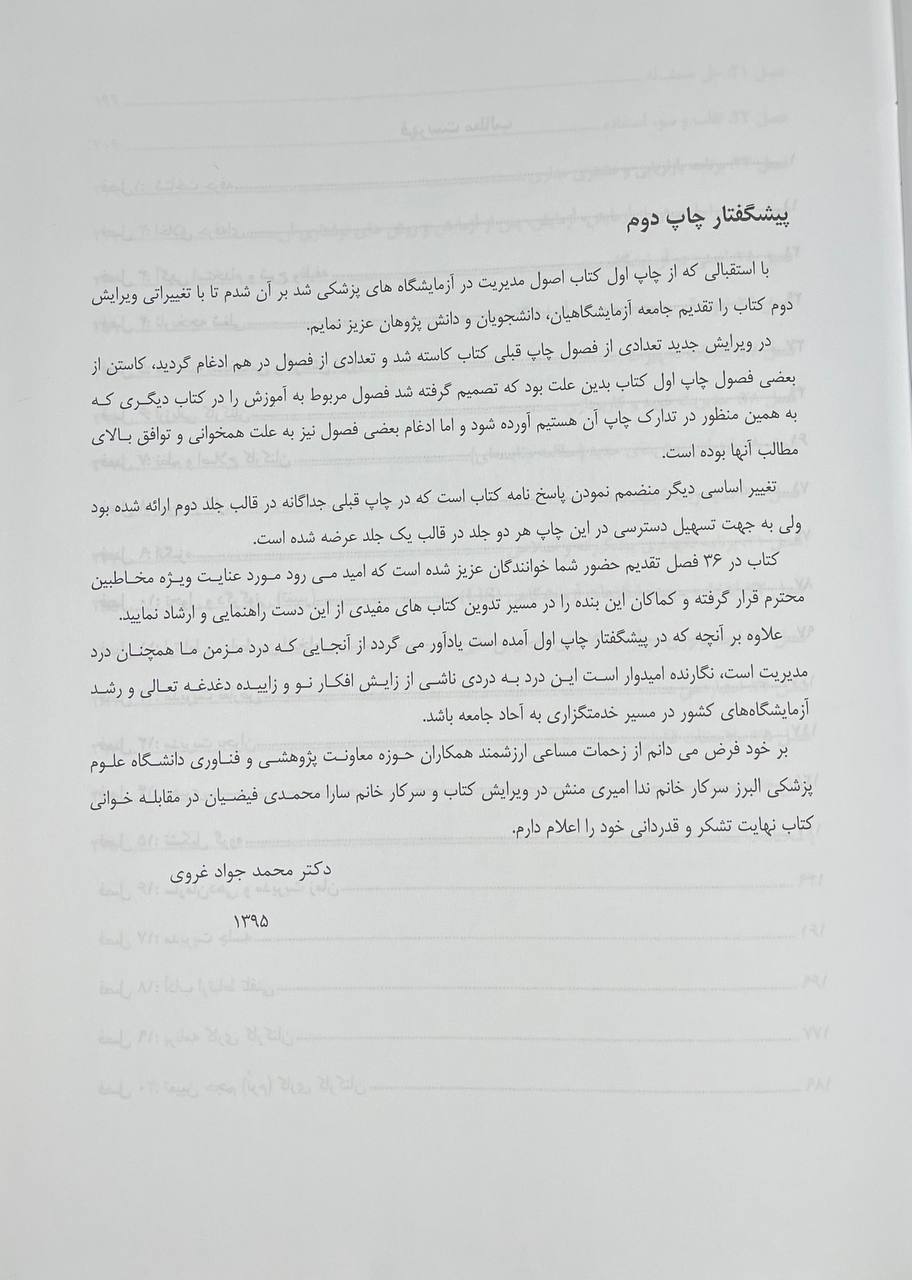 پیشگفتار چاپ دوم
با استقبالی که از چاپ اول کتاب اصول مدیریت در آزمایشگاه های پزشکی شد بر آن شدم تا با تغییراتی ویرایش
دوم کتاب را تقدیم جامعه آزمایشگاهیان، دانشجویان و دانش پژوهان عزیز نمایم.
در ویرایش جدید تعدادی از فصول چاپ قبلی کتاب کاسته شد و تعدادی از فصول در هم ادغام گردید، کاستن از
بعضی فصول چاپ اول کتاب بدین علت بود که تصمیم گرفته شد فصول مربوط به آموزش را در کتاب دیگری که
به همین منظور در تدارک چاپ آن هستیم آورده شود و اما ادغام بعضی فصول نیز به علت همخوانی و توافق بالای
مطالب آنها بوده است.
تغییر اساسی دیگر منضمم نمودن پاسخ نامه کتاب است که در چاپ قبلی جداگانه در قالب جلد دوم ارائه شده بود
ولی به جهت تسهیل دسترسی در این چاپ هر دو جلد در قالب یک جلد عرضه شده است.
کتاب در ۳۶ فصل تقدیم حضور شما خوانندگان عزیز شده است که امید می رود مورد عنایت ویژه مخاطبین
محترم قرار گرفته و کماکان این بنده را در مسیر تدوین کتاب های مفیدی از این دست راهنمایی و ارشاد نمایید.
علاوه بر آنچه که در پیشگفتار چاپ اول آمده است یادآور می گردد از آنجایی که درد مزمن ما همچنان درد
مدیریت است، نگارنده امیدوار است این درد به دردی ناشی از زایش افکار نو و زاییده دغدغه تعالی و رشد
آزمایشگاه‌های کشور در مسیر خدمتگزاری به آحاد جامعه باشد.
بر خود فرض می دانم از زحمات مساعی ارزشمند همکاران حوزه معاونت پژوهشی و فناوری دانشگاه علوم
پزشکی البرز سرکار خانم ندا امیری منش در ویرایش کتاب و سرکار خانم سارا محمدی فیضیان در مقابله خوانی
کتاب نهایت تشکر و قدردانی خود را اعلام دارم.
دکتر محمد جواد غروی
۱۳۹۵